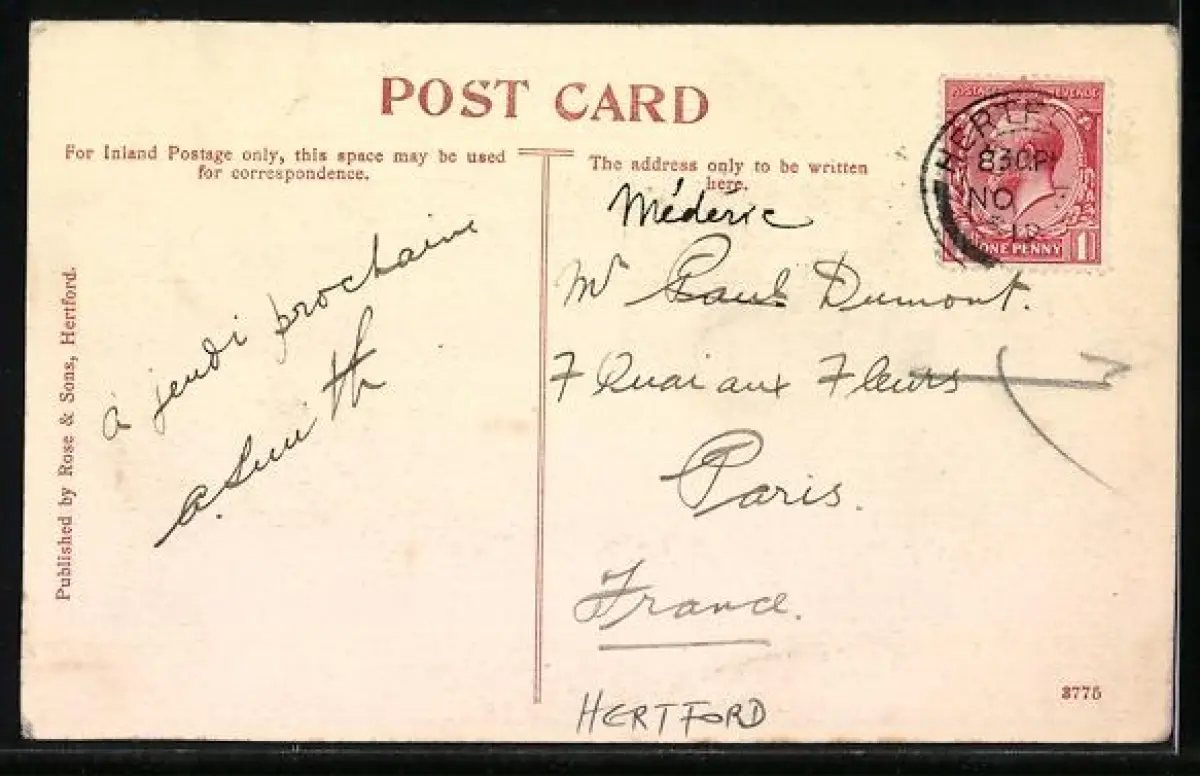 POST CARD
For Inland Postage only, this space may be used
for correspondence.
The address only to be written
here.
à jeudi prochain
a. Smith
Médéric
Mr Paul Dumont.
7 Quai aux Fleurs
Paris.
France.
HERTFORD
Published by Rose & Sons, Hertford.
3775
POSTAGE REVENUE
ONE PENNY 1
HERTFO
8 30 PM
NO